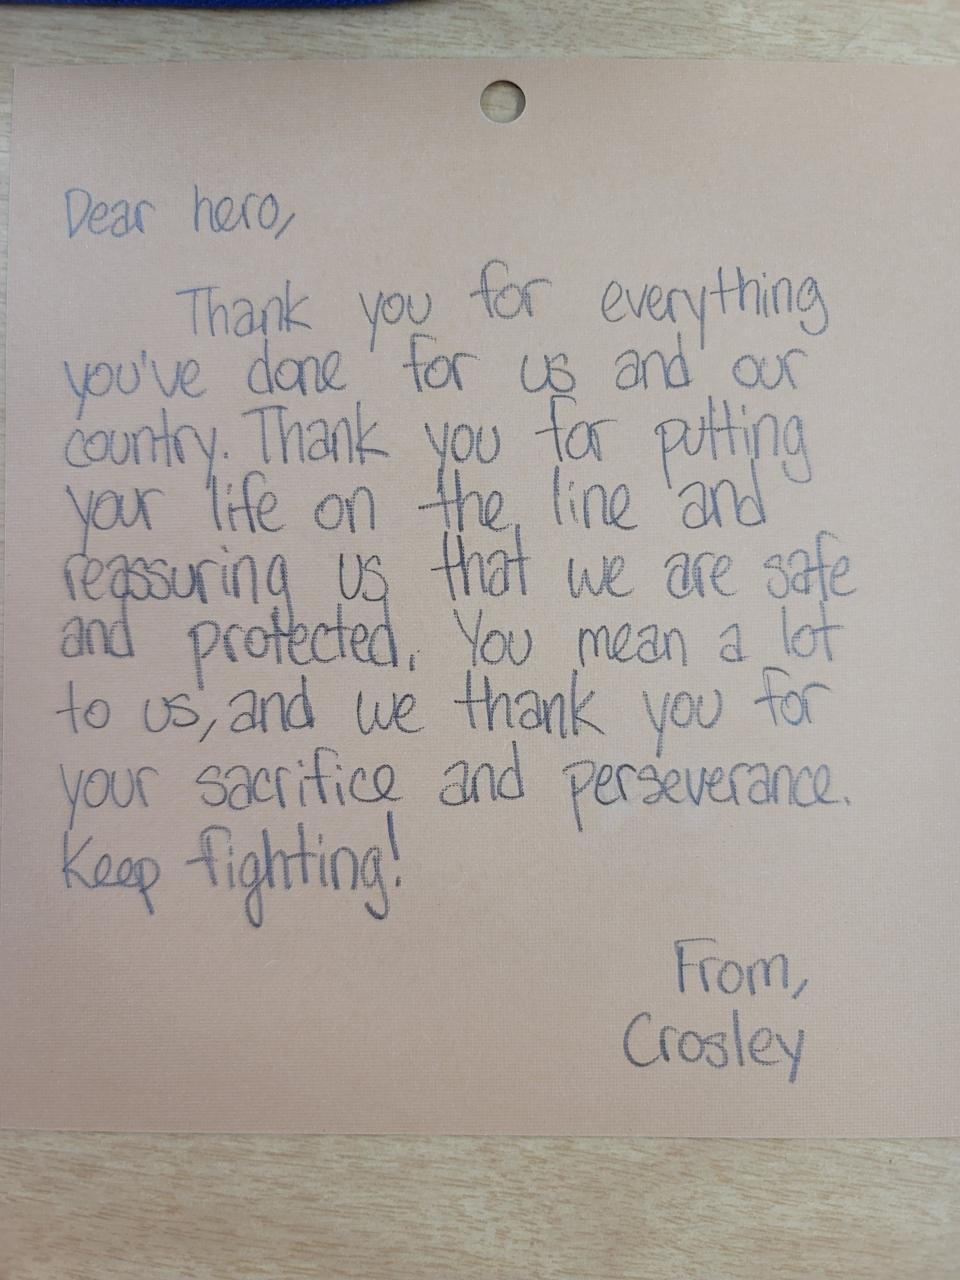 Dear hero,
Thank you for everything
you've done for us and our
country. Thank you for putting
your life on the line and
reassuring us that we are safe
and protected. You mean a lot
to us, and we thank you for
your sacrifice and perseverance.
Keep fighting!
From,
Crosley